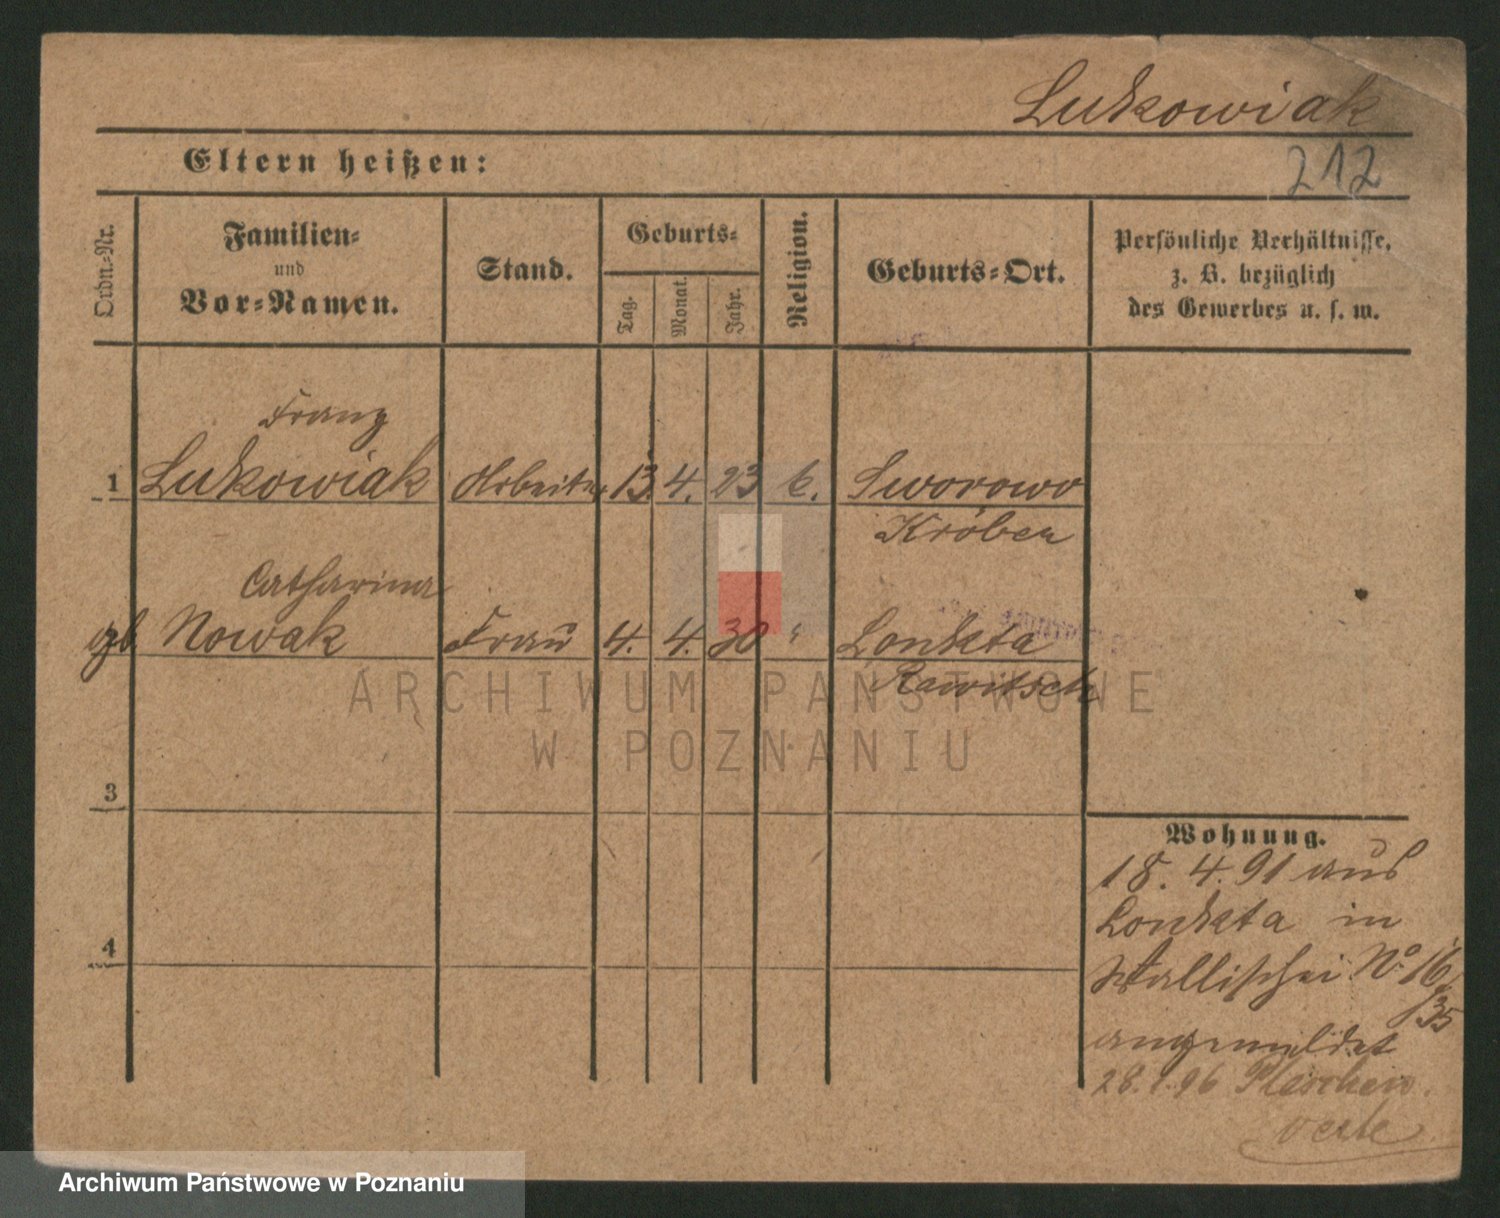 Lukowiak
Eltern heißen:
212
Ordn.-Nr.
Familien-
und
Vor-Namen.
Stand.
Geburts-
Tag.
Monat.
Jahr.
Religion.
Geburts-Ort.
Persönliche Verhältnisse,
z. B. bezüglich
des Gewerbes u. s. w.
Franz
1 Lukowiak Arbeiter 13. 4. 23 Sworowo
Kröben
Catharina
gb. Nowak Frau 4. 4. 30 " Lonkta
Rawitsch
ARCHIWUM PAŃSTWOWE
W POZNANIU
3
4
Wohnung.
18. 4. 91 aus
Lonkta in
Wallischei No 16/
35
angemeldet
28.1.96 Pleschen
Archiwum Państwowe w Poznaniu